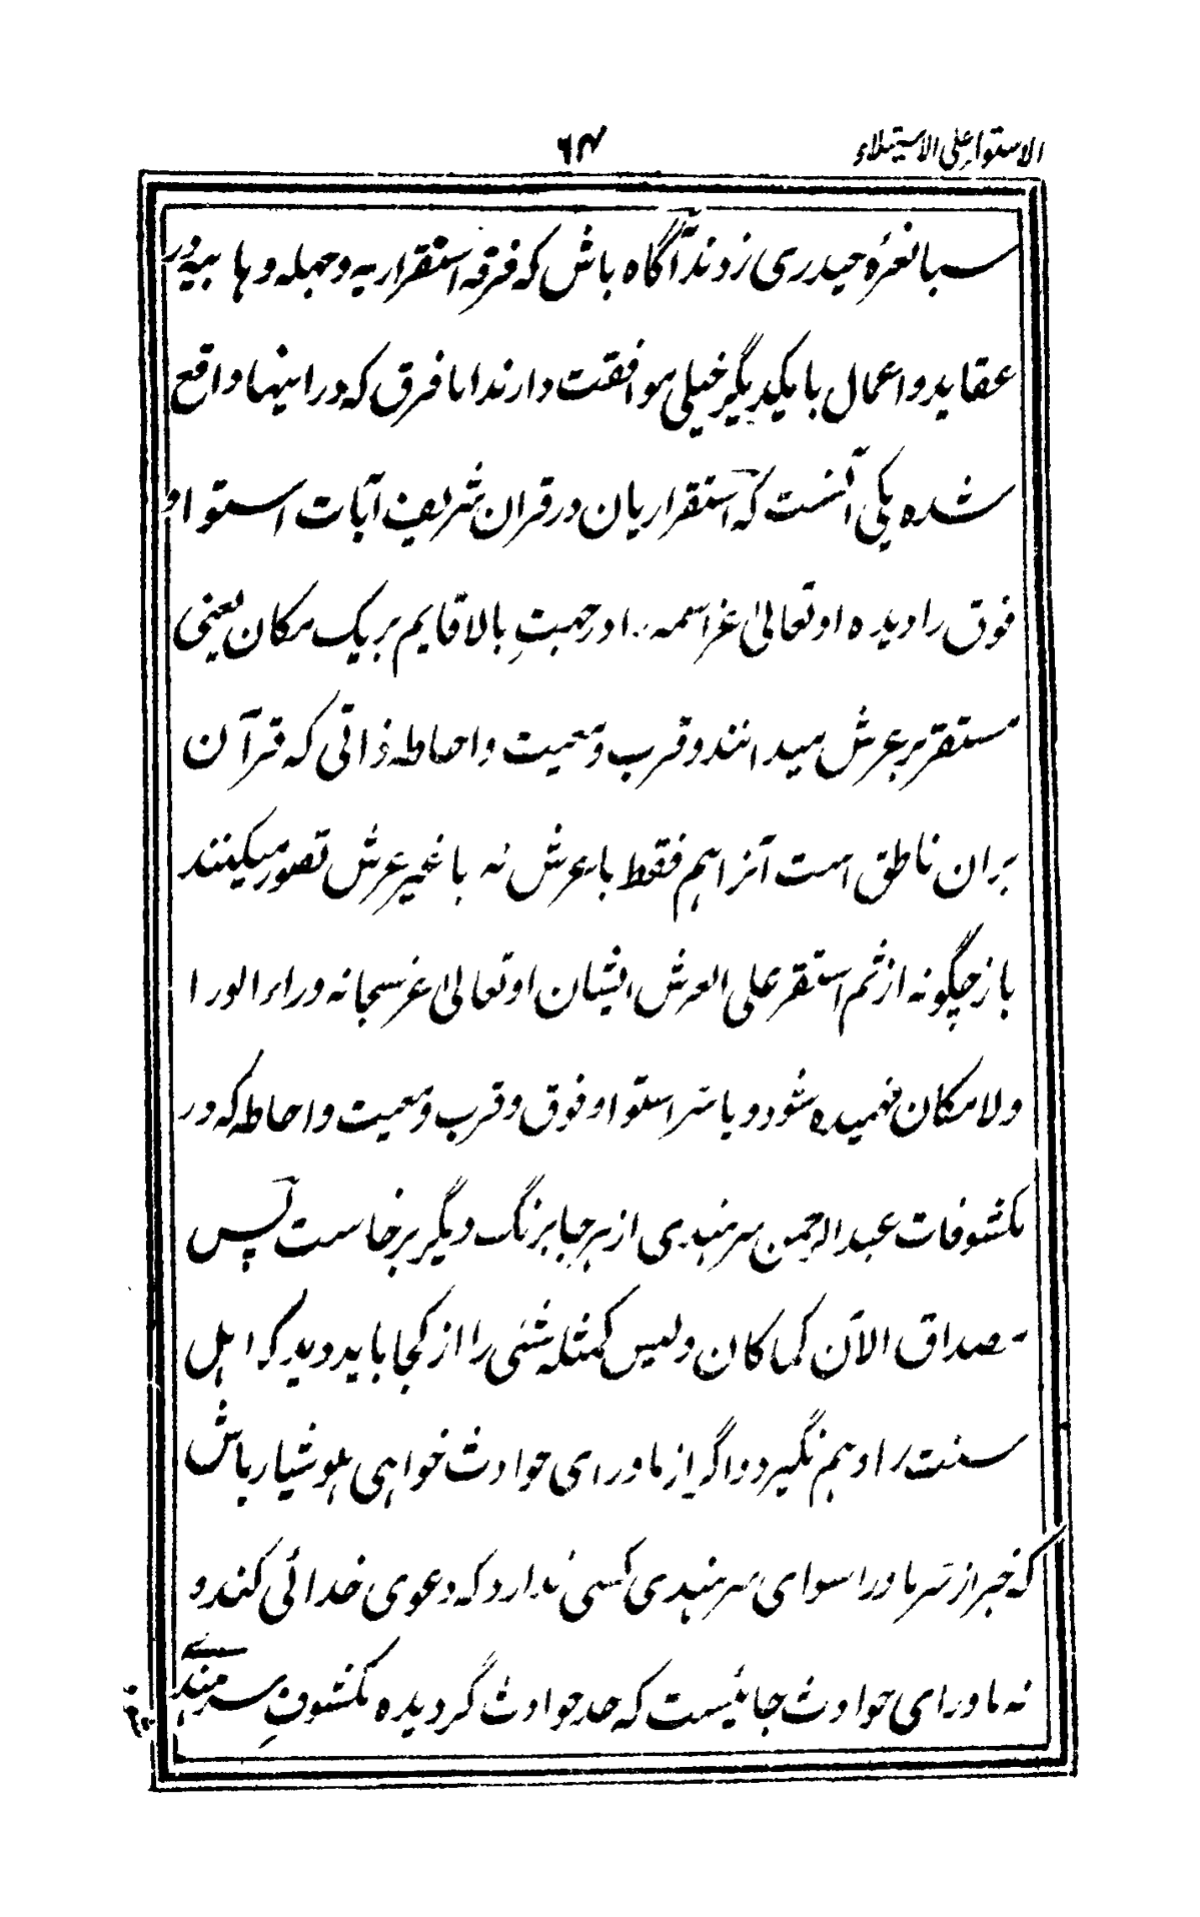 الاستوار علی الاستیلاء
۶۴
سبا نعرۂ حیدری زوند آگاہ باش کہ فرقہ استقراریہ وجہلہ وہابیہ در
عقاید و اعمال بایکدیگر خیلی موافقت دارند اما فرق کہ در اینہا واقع
شدہ یکی آنست کہ استقراریان در قران شریف آیات استوا و
فوق را دیدہ او تعالیٰ عزاسمہ را در جہتِ بالا قایم بریک مکان یعنی
مستقر بر عرش میدانند و قرب و معیت و احاطہ ذاتی کہ قرآن
بران ناطق است آنرا ہم فقط با عرش نہ با غیر عرش تصور میکینند
باز چگونہ از ثم استقر علی العرش ایشان او تعالیٰ عز سبحانہ وراء الورا
و لامکان فہمیدہ شود و یا سر استوا و فوق و قرب و معیت و احاطہ کہ در
مکشوفات عبدالرحمن سرہندی از ہر جا برنگ دیگر برخاست پس
مصداق الآن کما کان و لیس کمثلہ شئی را از کجا باید دید کہ اہل
سنت را وہم نگیرد و اگر از ماورای حوادث خواہی ہوشیار باش
کہ خبر از سر ماورا سوای سرہندی کسی ندارد کہ دعوی خدائی کند و
نہ ماورای حوادث جائیست کہ حد حوادث گردیدہ مکشوفِ سرہندی